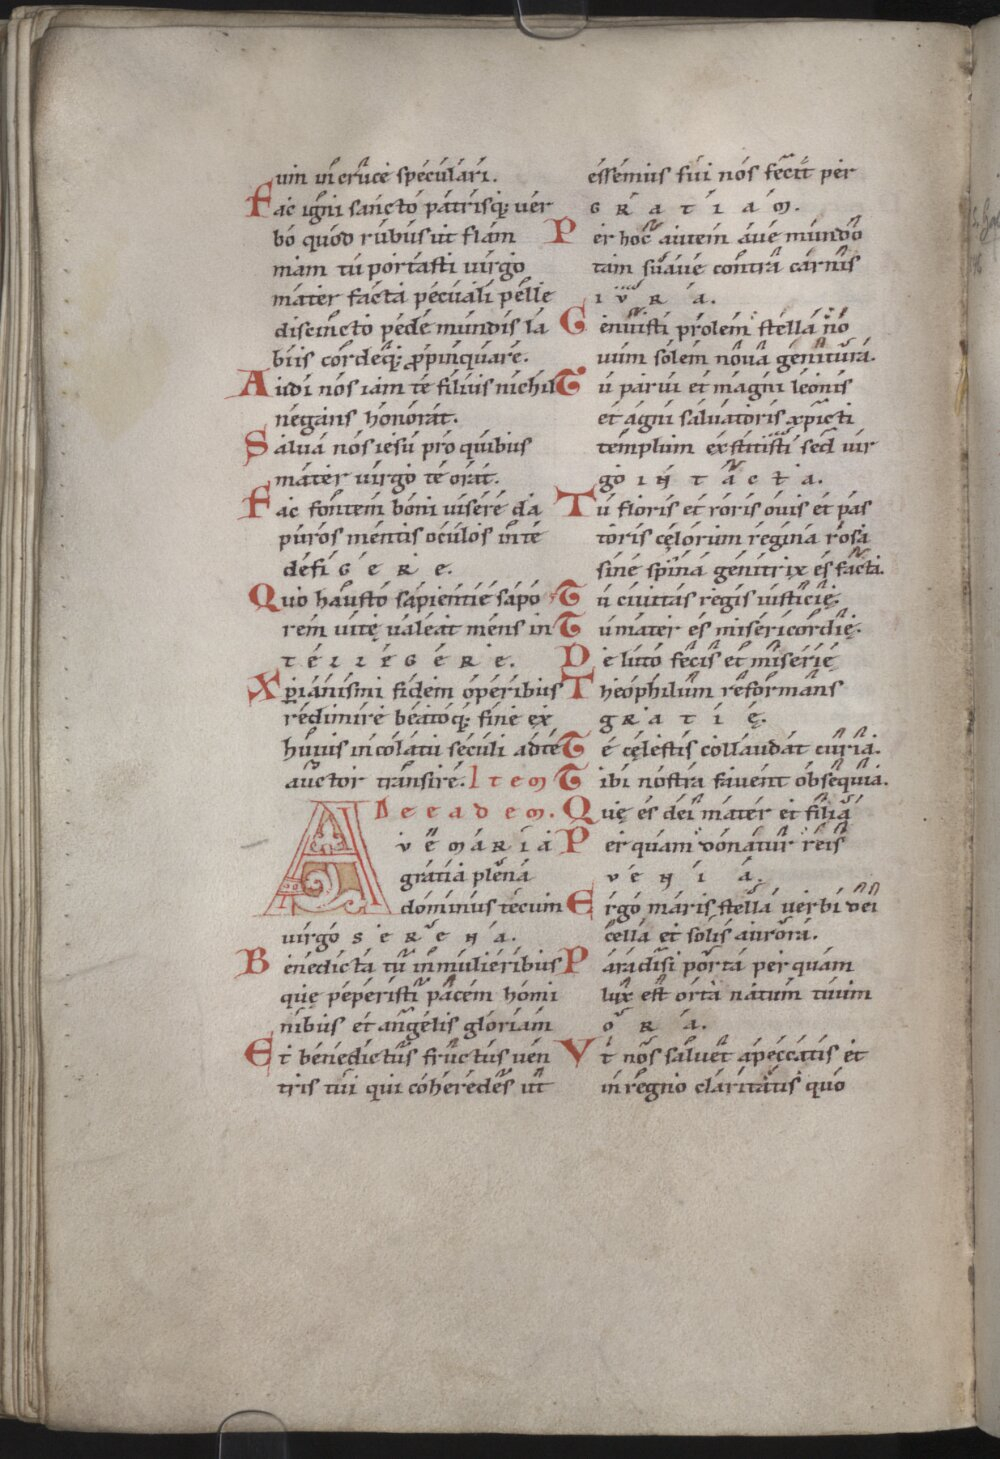 uin in cruce speculari.
Fac igni sancto patrisq; uer
bo quod rubus ut flam
mam tu portasti uirgo
mater facta pecuali pelle
discincto pede mundis la
biis cordeq; ꝓpinquare.
Audi nos iam te filius nichil
negans honorat.
Salua nos iesu pro quibus
mater uirgo te orat.
Fac fontem boni uisere da
puros mentis oculos in te
defi G E R E.
Quo hausto sapientie sapo
rem uitę ualeat mens in
T E L L E G E R E.
Xpianismi fidem operibus
redimire beatoq; fine ex
huius incolatu seculi ad te
auctor transire. Item
De eadem.
AVE MARIA
gratia plena
dominus tecum
uirgo S E R E N A.
Benedicta tu in mulieribus
que peperisti pacem homi
nibus et angelis gloriam
Et benedictus fructus uen
tris tui qui coheredes ut
essemus sui nos fecit per
G R A T I A M.
Per hoc autem aue mundo
tam suaue contra carnis
I V R A.
Genuisti prolem stella no
uum solem noua genitura.
Tu parui et magni leonis
et agni saluatoris xpicti
templum exstitisti sed uir
go I N T A C T A.
Tu floris et roris ouis et pas
toris cęlorum regina rosa
sine spina genitrix es facta.
Tu ciuitas regis iusticię.
Tu mater es misericordię.
De luto fecis et miserię
Theophilum reformans
G R A T I Ę.
Te cęlestis collaudat curia.
Tibi nostra fauent obsequia.
Quę es dei mater et filia
Per quam donatur reis
V E N I A.
Ergo maris stella uerbi dei
cella et solis aurora.
Paradisi porta per quam
lux est orta natum tuum
O R A.
Vt nos saluet a peccatis et
in regno claritatis quo